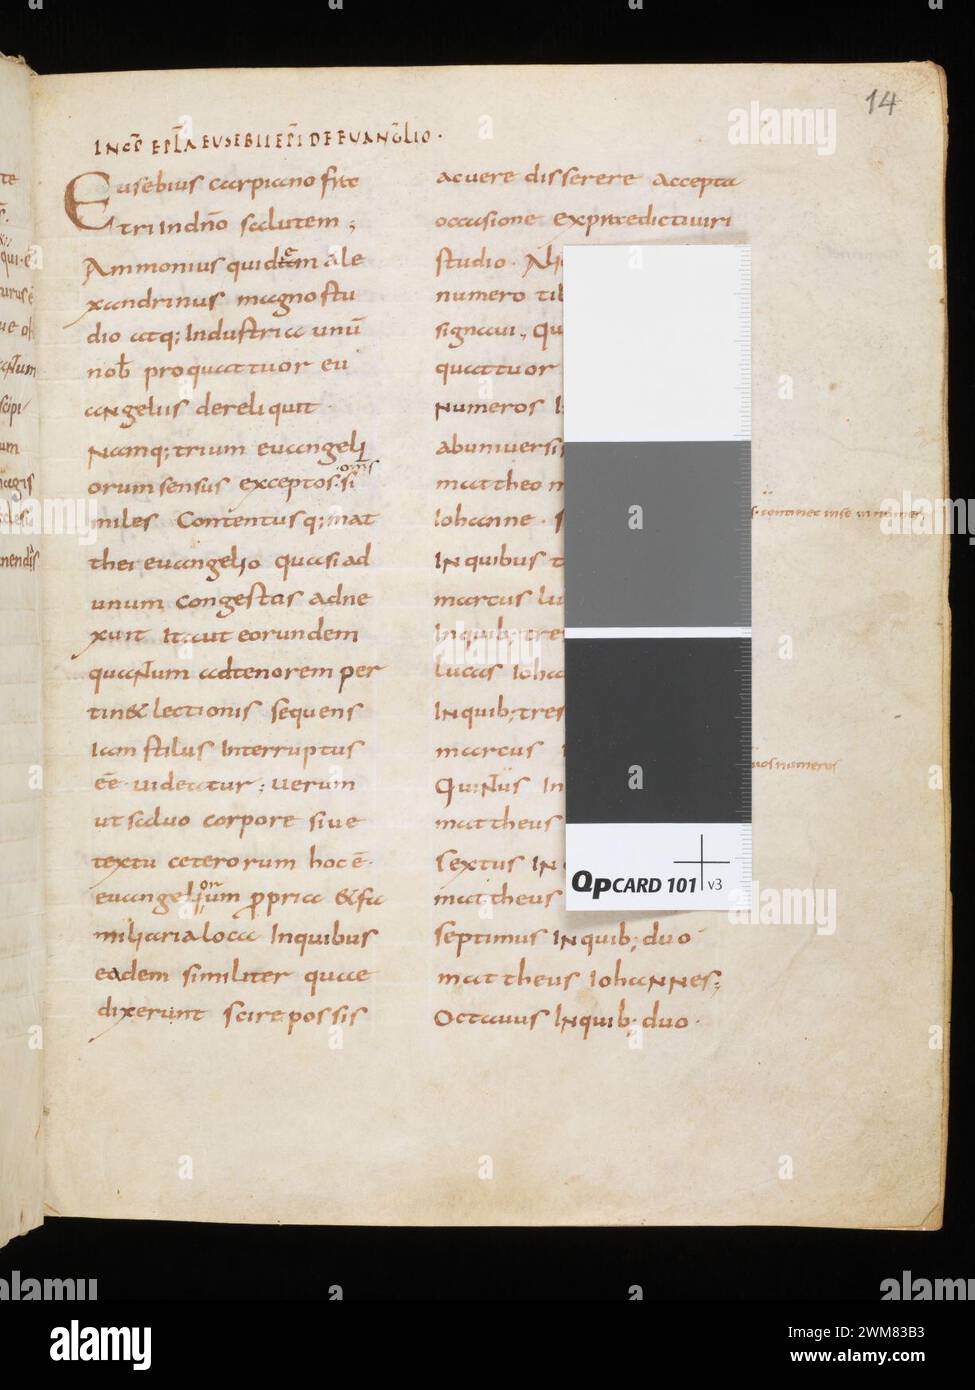 14
INCP EPLA EUSEBII EPI DE EUANGLIO
Eusebius carpiano fra
tri In dno salutem;
Ammonius quidem ale
xandrinus magno stu
dio atq; Industria unu
nob pro quattuor eu
angeliis dereliquit
Namq; trium euangeli
orum sensus exceptos si
miles Contentus q; mat
thei euangelio quasi ad
unum congestas adne
xuit Ita ut eorundem
quantum ad tenorem per
tin& lectionis sequens
Iam stilus Interruptus
ee uideatur; uerum
ut saluo corpore siue
textu ceterorum hoc e
euangeliorum propria &fa
miliaria loca Inquibus
eadem similiter quae
dixerunt scire possis
ac uere disserere accepta
occasione ex praedicti uiri
studio. Ali
numero tit
signaui. Qu
quattuor
Numeros I
ab uniuersis
mattheo m
Iohanne.
INquibus t
marcus lu
Inquib; tres
lucas Ioha
INquib; tres
marcus
Quintus In
mattheus
sextus IN
mattheus
septimus INquib; duo
mattheus IohaNNes;
Octauus INquib; duo
QPCARD 101 v3
alamy
Image ID: 2WM83B3
www.alamy.com